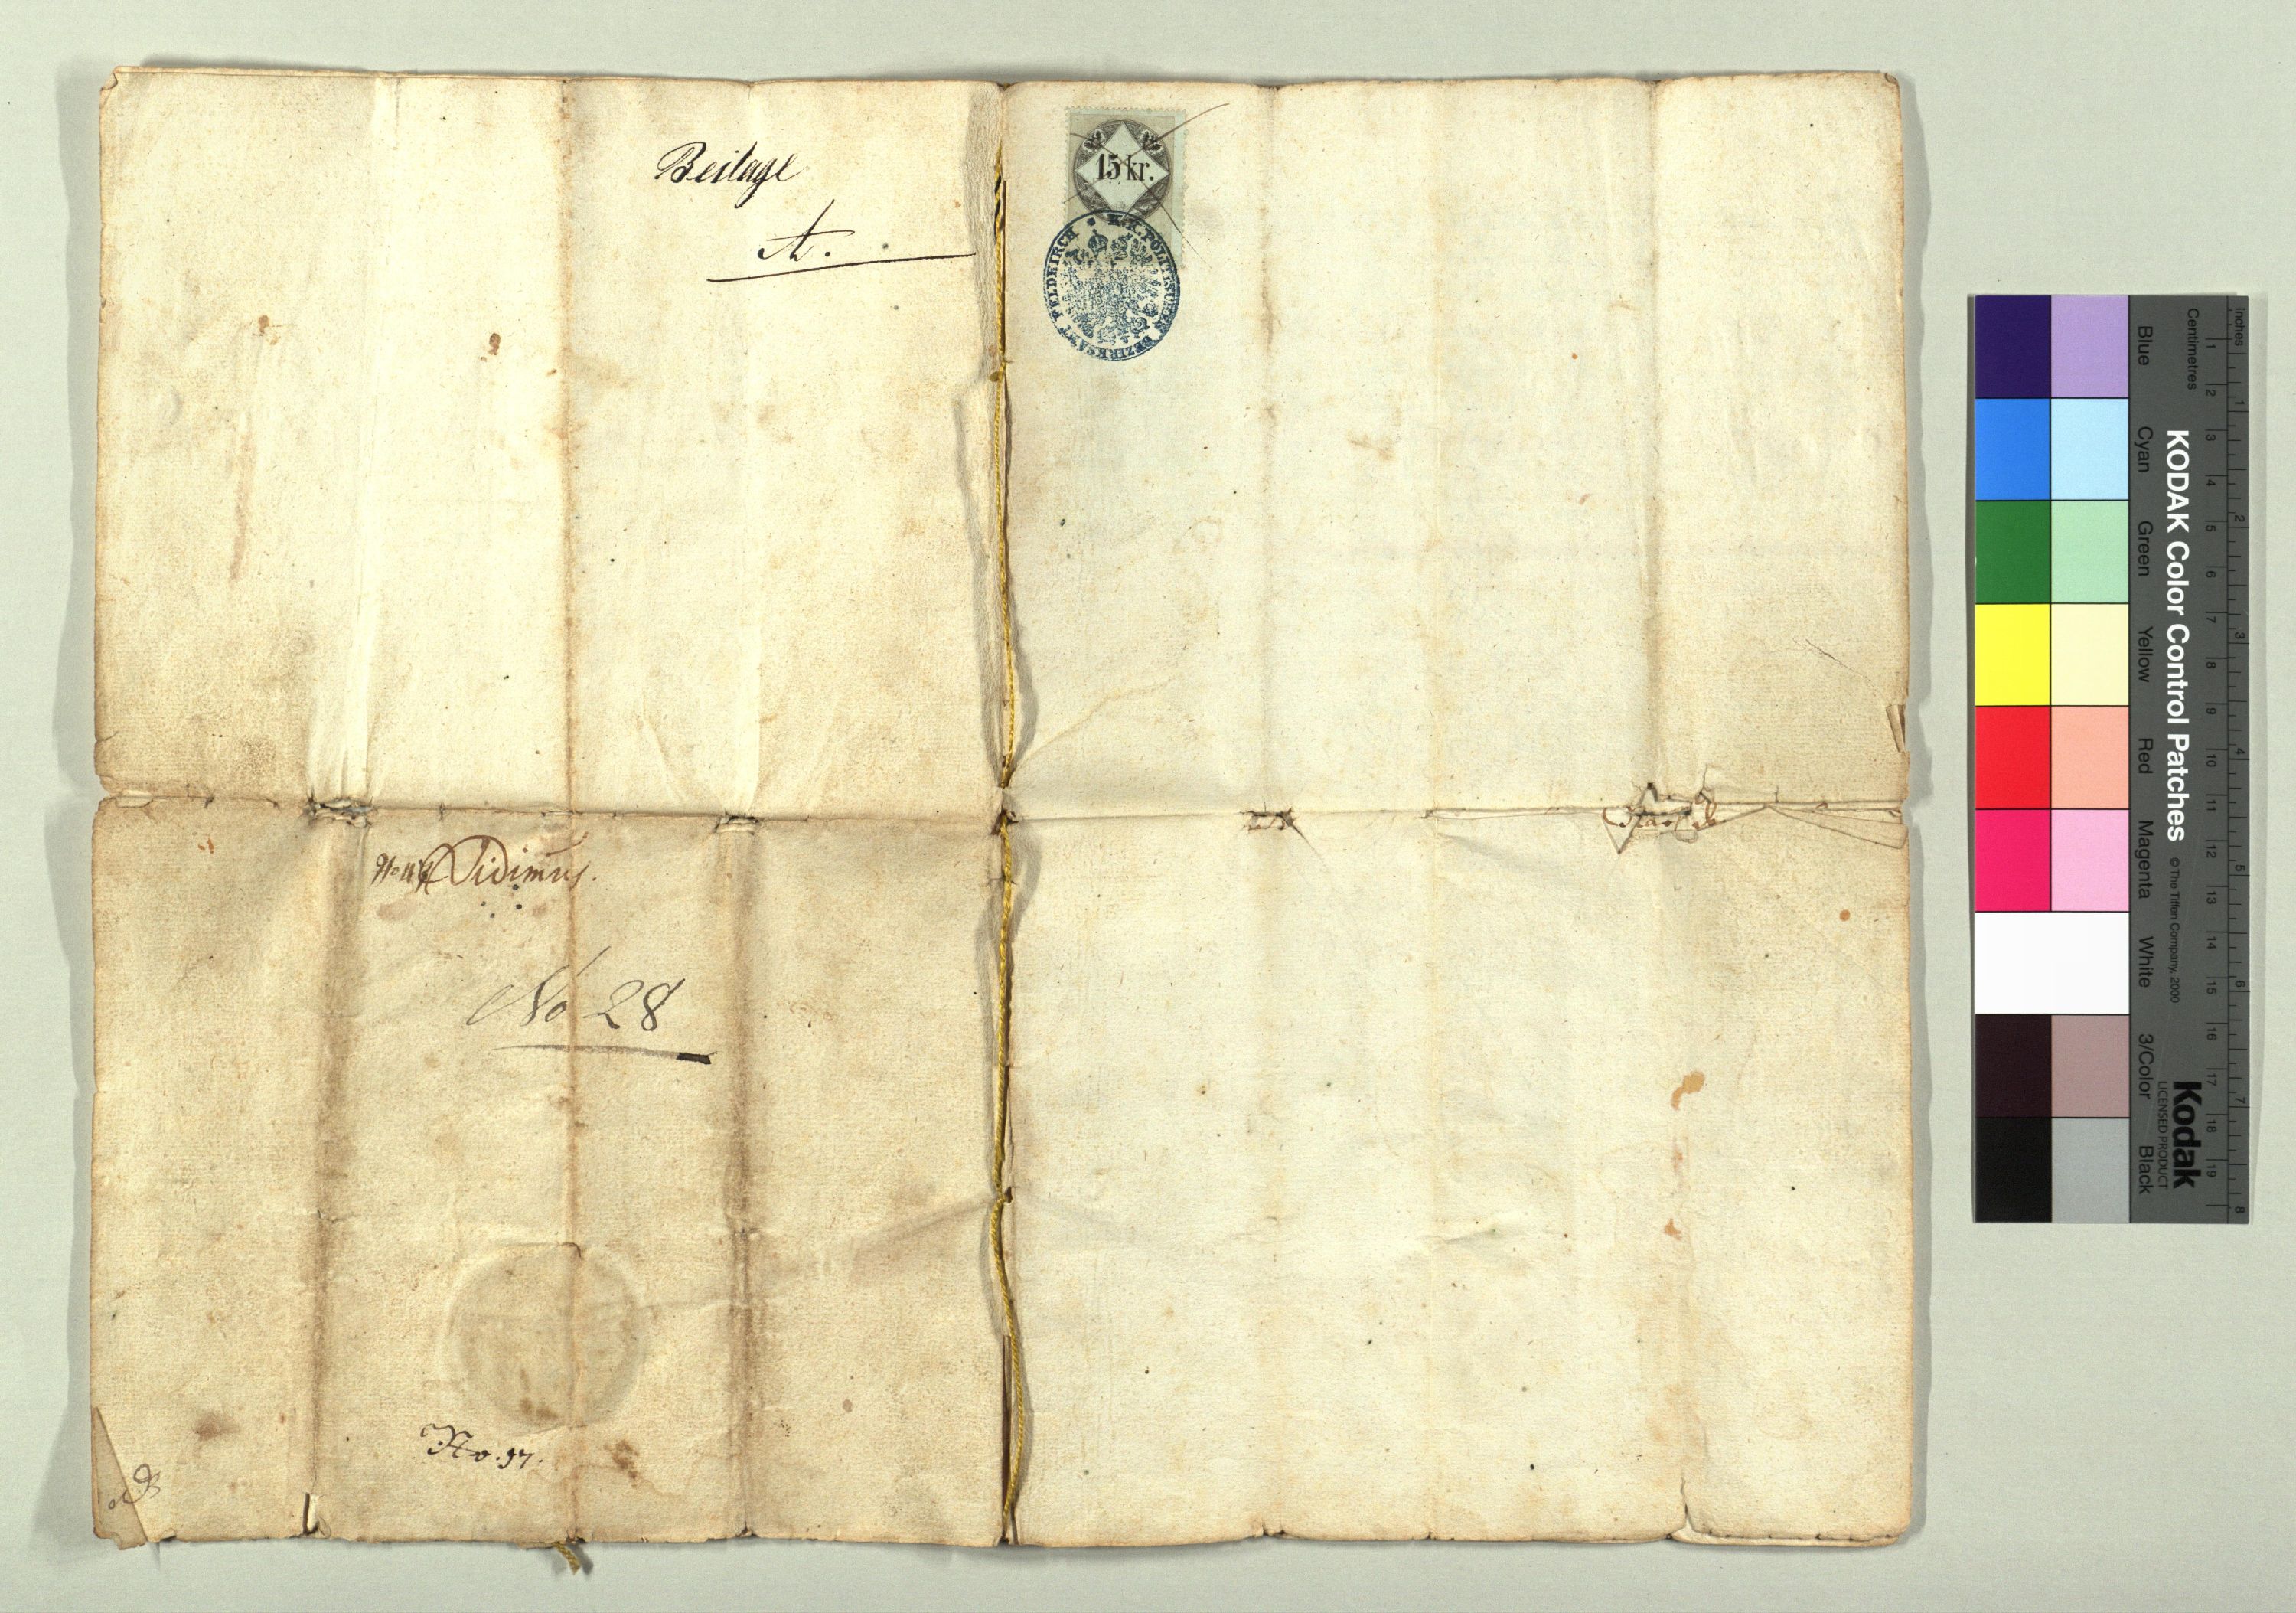 Beilage
A.
Vidimus.
No 28
No. 37.
15 kr.
K.K. POLITISCHES BEZIRKSAMT FELDKIRCH
Inches
Centimetres
1 2 3 4 5 6 7 8
1 2 3 4 5 6 7 8 9 10 11 12 13 14 15 16 17 18 19
KODAK Color Control Patches
© The Tiffen Company, 2000
Kodak
LICENSED PRODUCT
Blue Cyan Green Yellow Red Magenta White 3/Color Black